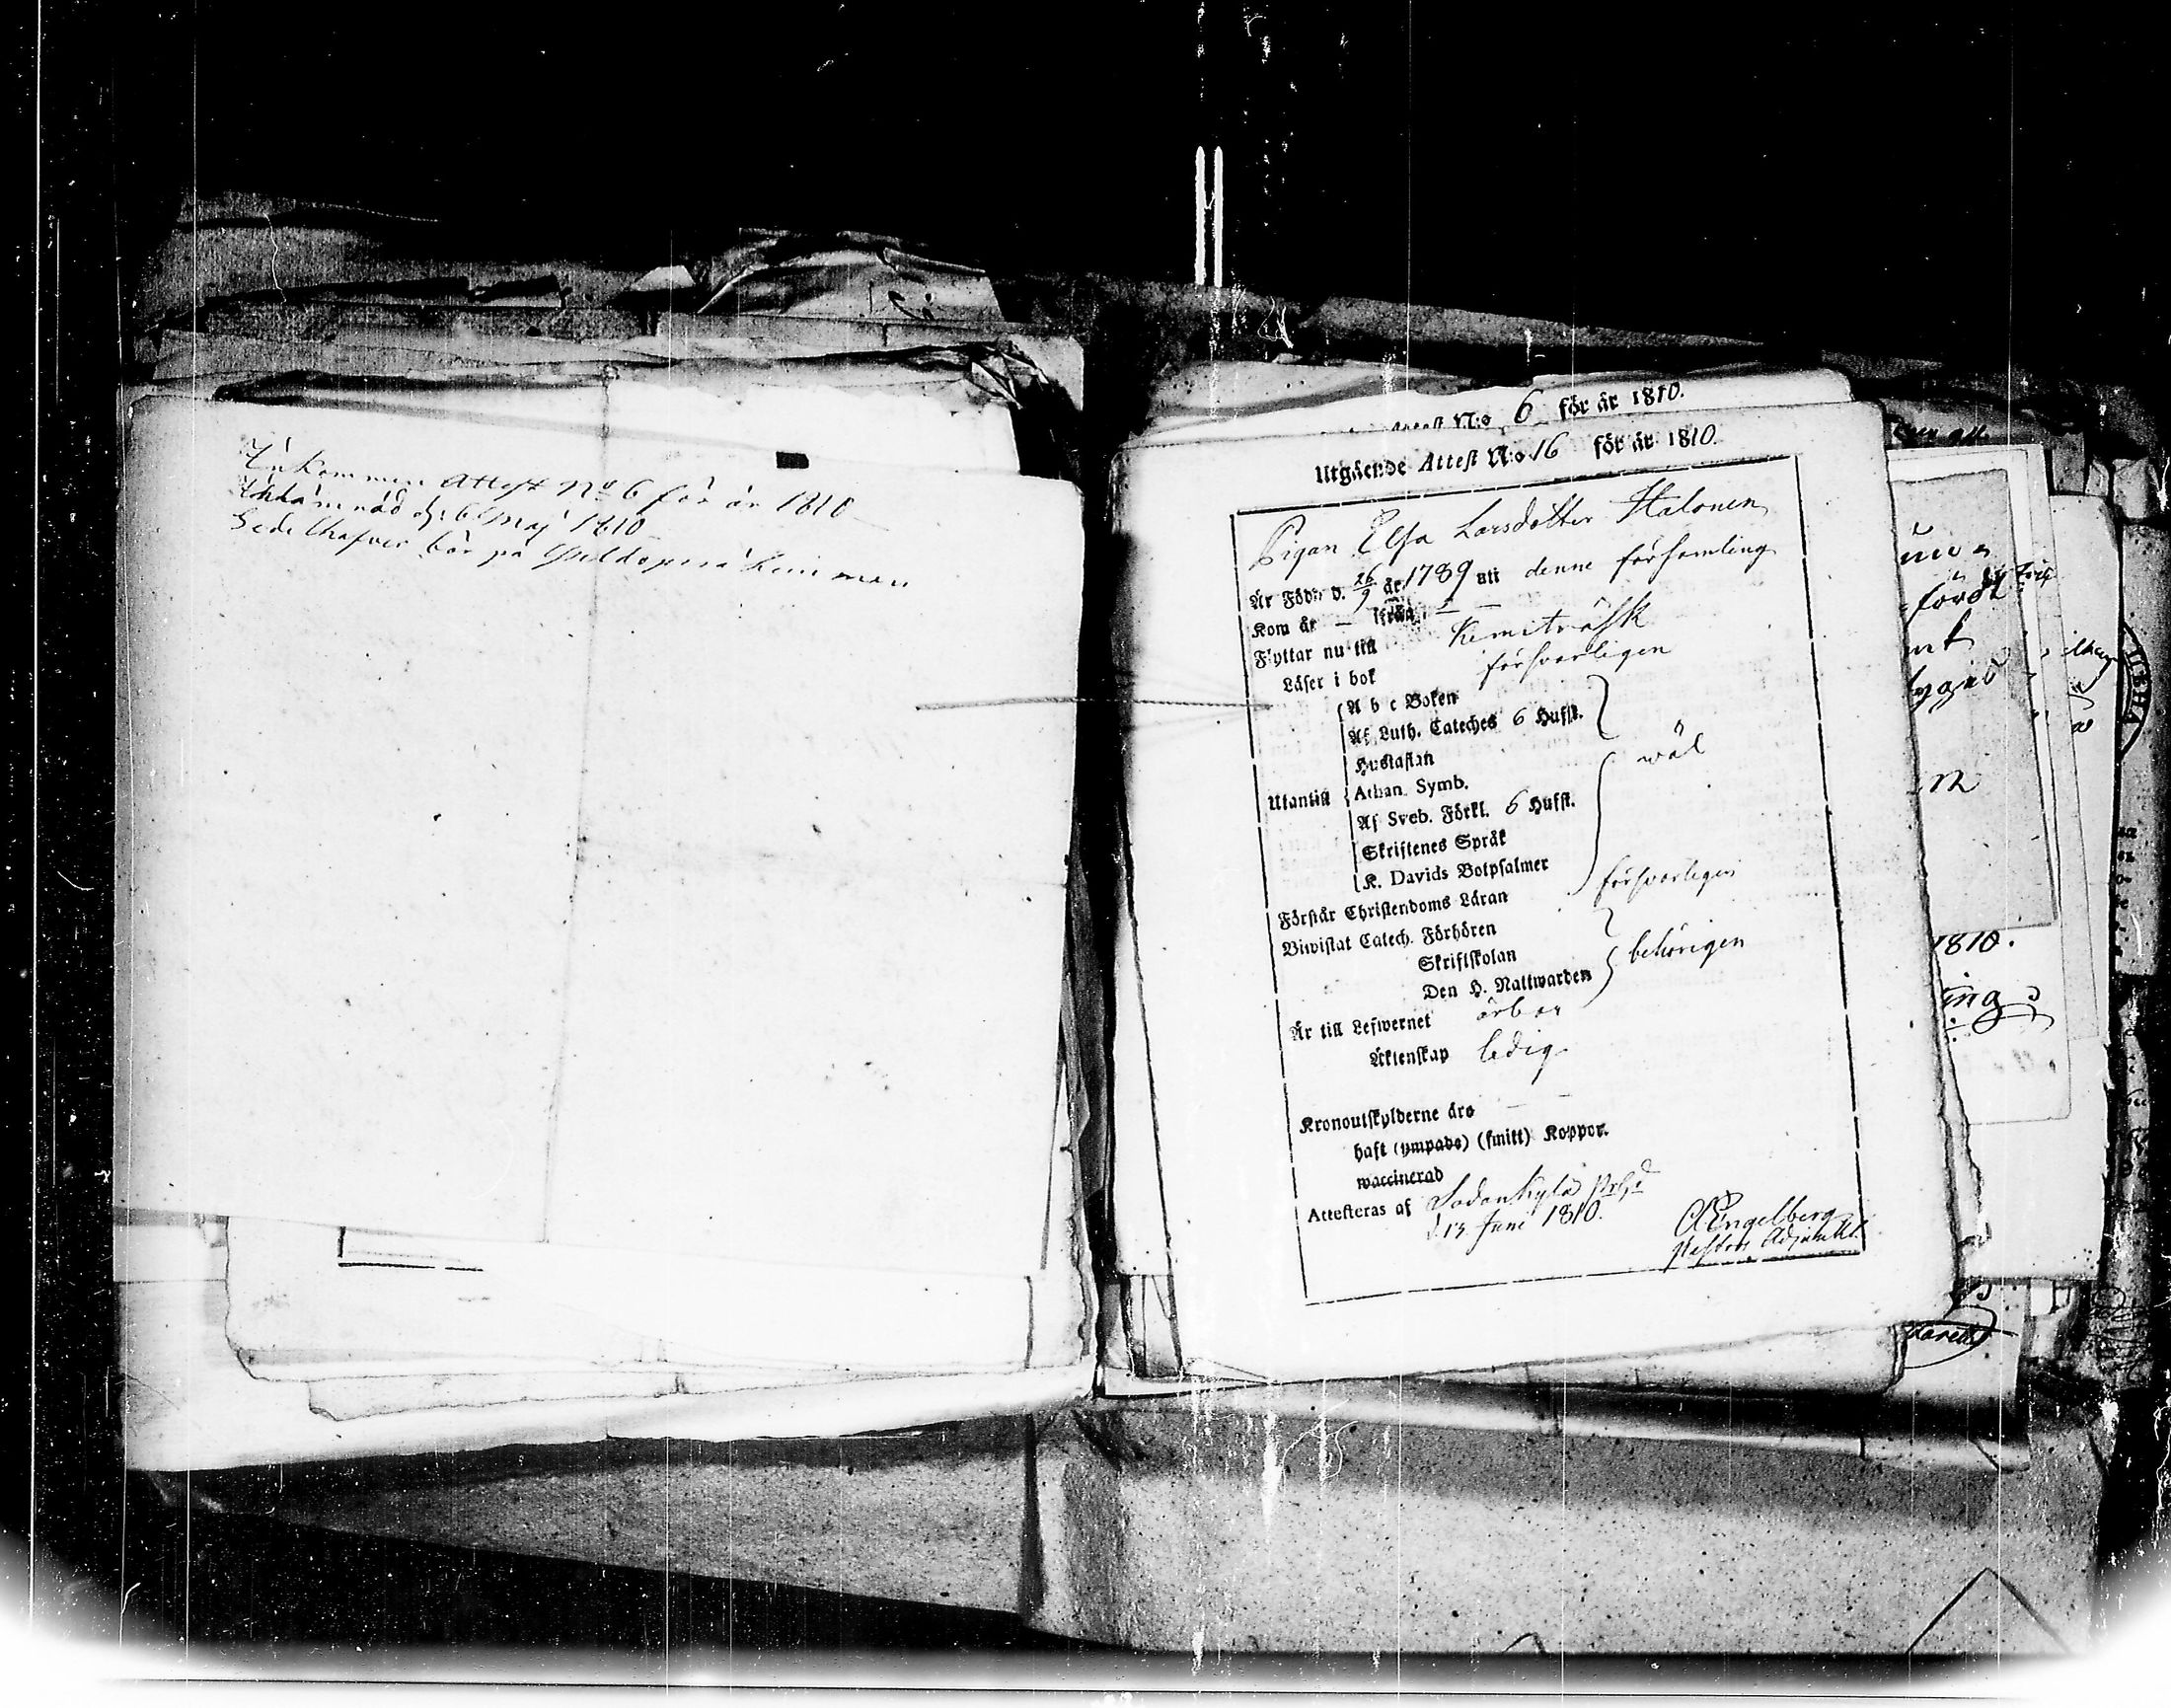 Inkommen Attest No 6 för år 1810
Inlämnad d. 6 Maj 1810
Sedelhafver bor på hemman
Attest N:o 6 för år 1810.
Utgående Attest N:o 16 för år 1810.
Pigan Elsa Larsdotter Halonen
Är Född d. 26/9 år 1789 uti denne församling
Kom år — ifrån —
Flyttar nu till Kemiträsk
Läser i bok försvarligen
A b c Boken
Af Luth. Cateches 6 Hufst.
Hustaflan
wäl
Utantill
Athan. Symb.
Af Sveb. Förkl. 6 Hufst.
Skriftenes Språk
K. Davids Botpsalmer
Förstår Christendoms Läran försvarligen
Biwistat Catech. Förhören
Skriftskolan
behörigen
Den H. Nattwarden
Är till Lefwernet ärbar
Äktenskap ledig
Kronoutskylderne äro —
haft (ympade) (smitt) Koppor.
waccinerad
Attesteras af Sodankylä
d. 13 Juni 1810.
A Engelberg
Pastors Adjunkt.
1810.